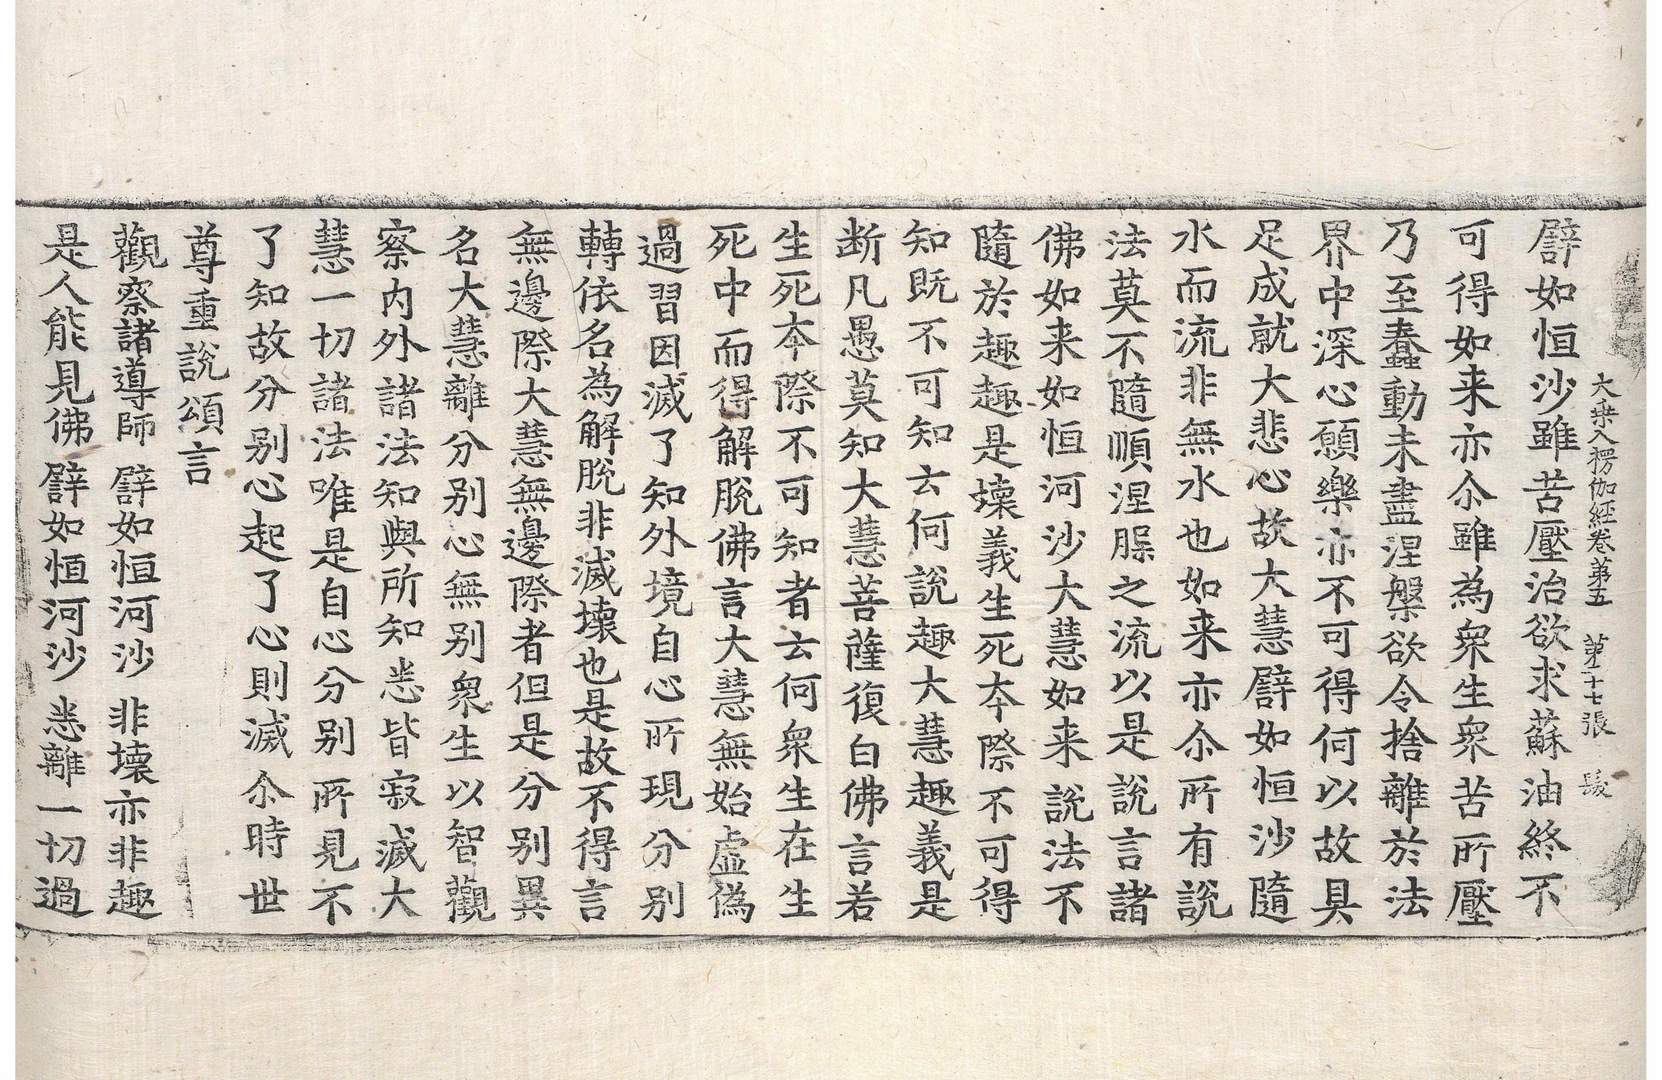 大乗入楞伽経卷第五 第十七張 髪
譬如恒沙雖苦壓治欲求蘇油終不
可得如来亦尒雖為衆生衆苦所壓
乃至蠢動未盡涅槃欲令捨離於法
界中深心願樂亦不可得何以故具
足成就大悲心故大慧譬如恒沙隨
水而流非無水也如来亦尒所有說
法莫不隨順涅槃之流以是說言諸
佛如来如恒河沙大慧如来說法不
隨於趣趣是壞義生死夲際不可得
知既不可知云何說趣大慧趣義是
断凡愚莫知大慧菩薩復白佛言若
生死夲際不可知者云何衆生在生
死中而得解脫佛言大慧無始虛偽
過習因滅了知外境自心所現分別
轉依名為解脫非滅壞也是故不得言
無邊際大慧無邊際者但是分別異
名大慧離分別心無別衆生以智觀
察內外諸法知與所知悉皆寂滅大
慧一切諸法唯是自心分別所見不
了知故分別心起了心則滅尒時世
尊重說頌言
觀察諸導師 譬如恒河沙 非壞亦非趣
是人能見佛 譬如恒河沙 悉離一切過